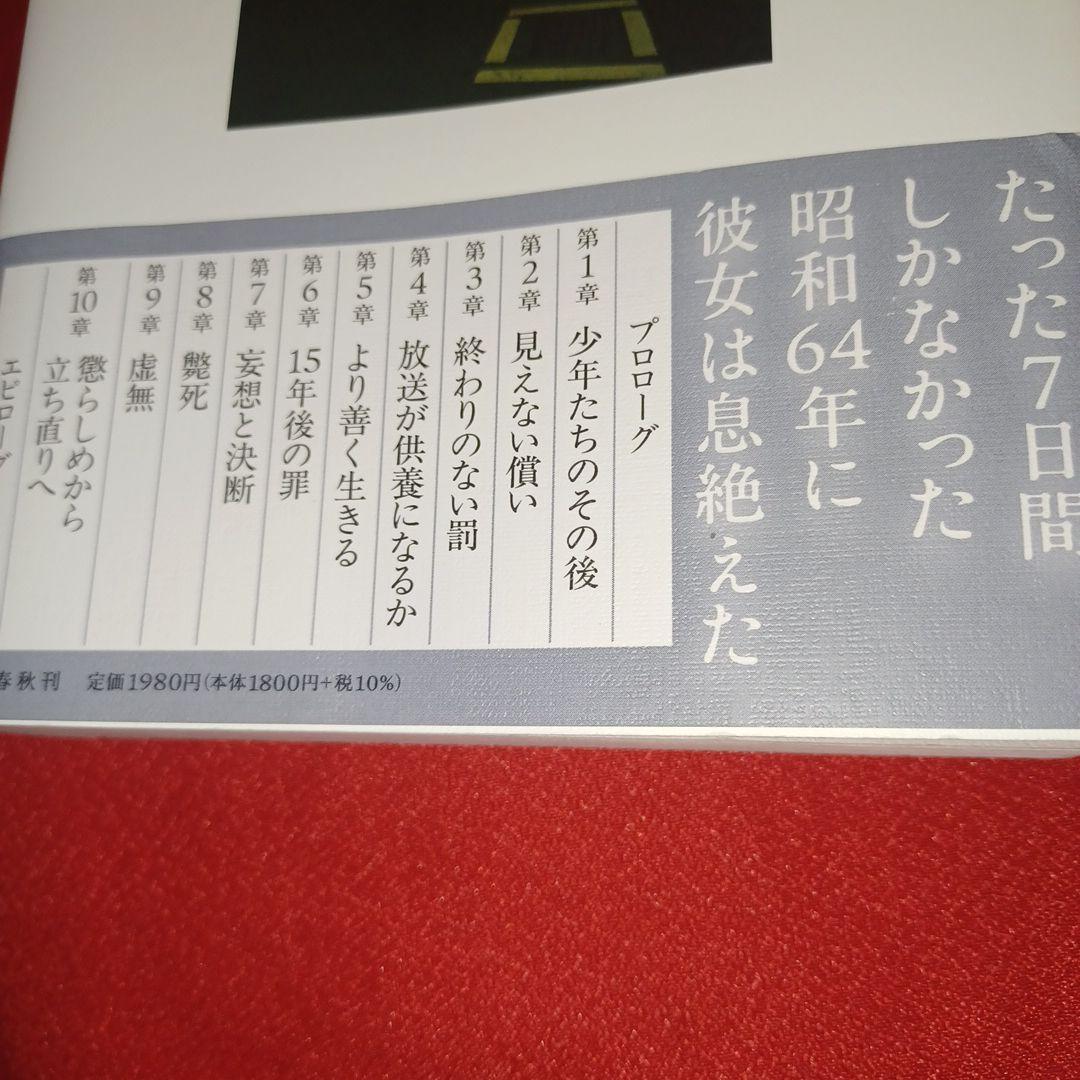 たった7日間
しかなかった
昭和64年に
彼女は息絶えた
プロローグ
第1章 少年たちのその後
第2章 見えない償い
第3章 終わりのない罰
第4章 放送が供養になるか
第5章 より善く生きる
第6章 15年後の罪
第7章 妄想と決断
第8章 斃死
第9章 虚無
第10章 懲らしめから
立ち直りへ
エピローグ
春秋刊 定価1980円(本体1800円+税10%)